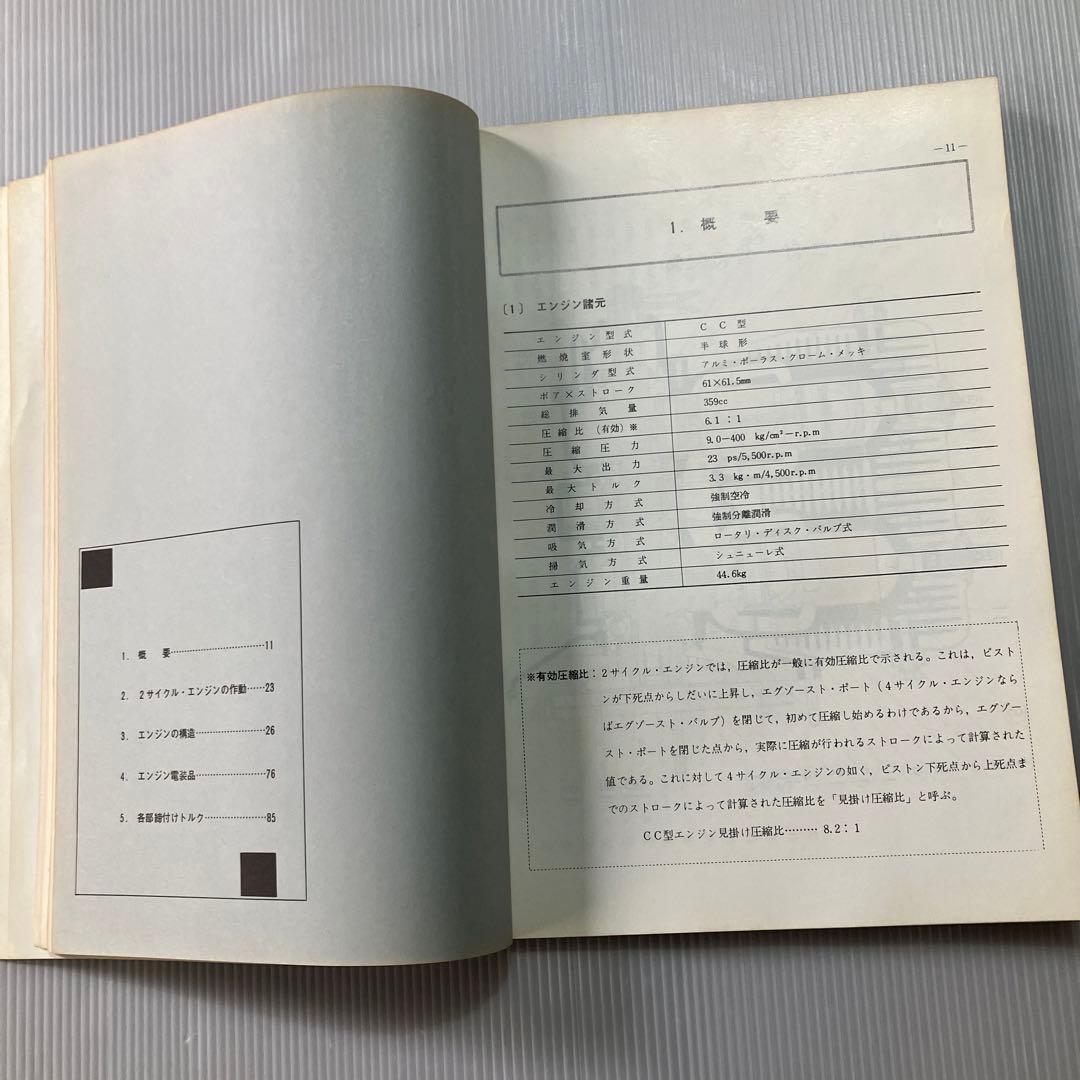 1. 概 要……………………………11
2. 2サイクル・エンジンの作動……23
3. エンジンの構造……………………26
4. エンジン電装品……………………76
5. 各部締付けトルク…………………85
—11—
1. 概 要
〔1〕 エンジン諸元
エンジン型式 CC型
燃焼室形状 半球形
シリンダ型式 アルミ・ポーラス・クローム・メッキ
ボア×ストローク 61×61.5mm
総排気量 359cc
圧縮比(有効)※ 6.1:1
圧縮圧力 9.0—400 kg/cm²—r.p.m
最大出力 23 ps/5,500r.p.m
最大トルク 3.3 kg・m/4,500r.p.m
冷却方式 強制空冷
潤滑方式 強制分離潤滑
吸気方式 ロータリ・ディスク・バルブ式
掃気方式 シュニューレ式
エンジン重量 44.6kg
※有効圧縮比:2サイクル・エンジンでは,圧縮比が一般に有効圧縮比で示される。これは,ピスト
ンが下死点からしだいに上昇し,エグゾースト・ポート(4サイクル・エンジンなら
ばエグゾースト・バルブ)を閉じて,初めて圧縮し始めるわけであるから,エグゾー
スト・ポートを閉じた点から,実際に圧縮が行われるストロークによって計算された
値である。これに対して4サイクル・エンジンの如く,ピストン下死点から上死点ま
でのストロークによって計算された圧縮比を「見掛け圧縮比」と呼ぶ。
CC型エンジン見掛け圧縮比………8.2:1